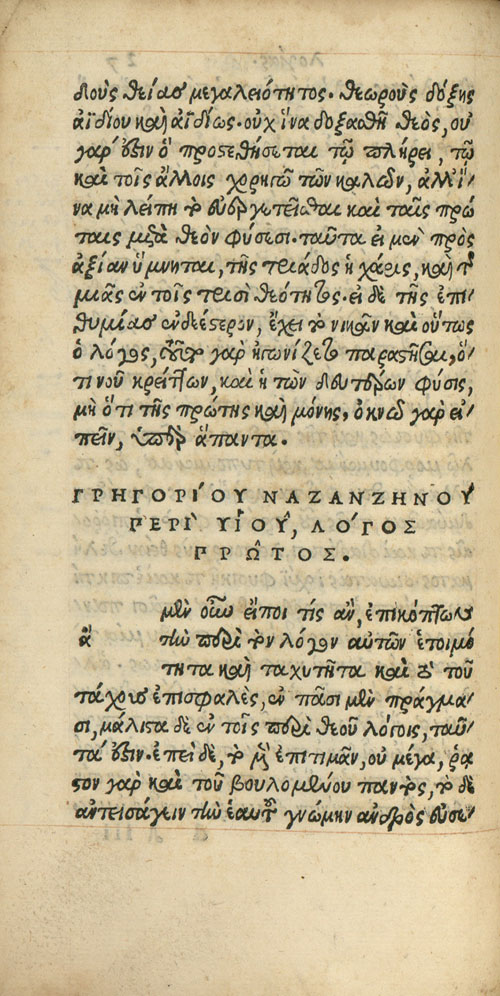 δοὺς θείας μεγαλειότητος. θεωροὺς δόξης
ἀϊδίου καὶ ἀϊδίως. οὐχ ἵνα δοξασθῇ θεὸς, οὐ
γάρ ἐστιν ὃ προστεθήσεται τῷ πλήρει, τῷ
καὶ τοῖς ἄλλοις χορηγῷ τῶν καλῶν, ἀλλ' ἵ
να μὴ λείπῃ τὸ εὐεργετεῖσθαι καὶ ταῖς πρώ
ταις μετὰ θεὸν φύσεσι. ταῦτα εἰ μὲν πρὸς
ἀξίαν ὕμνηται, τῆς τριάδος ἡ χάρις, καὶ τῆς
μιᾶς ἐν τοῖς τρισὶ θεότητος. εἰ δὲ τῆς ἐπι
θυμίας ἐνδεέστερον, ἔχει τὸ νικᾶν καὶ οὕτως
ὁ λόγος, τοῦτο γὰρ ἠγωνίζετο παραστῆσαι, ὅ
τι νοῦ κρείττων, καὶ ἡ τῶν δευτέρων φύσις,
μὴ ὅτι τῆς πρώτης καὶ μόνης, ὀκνῶ γὰρ εἰ
πεῖν, ὑπὲρ ἅπαντα.
ΓΡΗΓΟΡΙ´ΟΥ ΝΑΖΑΝΖΗΝΟΥ͂
ΠΕΡΙ` ΥΙ῾ΟΥ͂, ΛΟ´ΓΟΣ
ΠΡΩ͂ΤΟΣ.
μὲν οὖν εἴποι τίς ἂν, ἐπικόπτων
ἃ τὴν περὶ τὸν λόγον αὐτῶν ἑτοιμό
τητα καὶ ταχυτῆτα καὶ τὸ τοῦ
τάχους ἐπισφαλὲς, ἐν πᾶσι μὲν πράγμα
σι, μάλιστα δὲ ἐν τοῖς περὶ θεοῦ λόγοις, ταῦ
τά ἐστιν. ἐπεὶ δὲ, τὸ μὲν ἐπιτιμᾶν, οὐ μέγα, ῥᾷ
στον γὰρ καὶ τοῦ βουλομένου παντὸς, τὸ δὲ
ἀντεισάγειν τὴν ἑαυτοῦ γνώμην ἀνδρὸς εὐσε